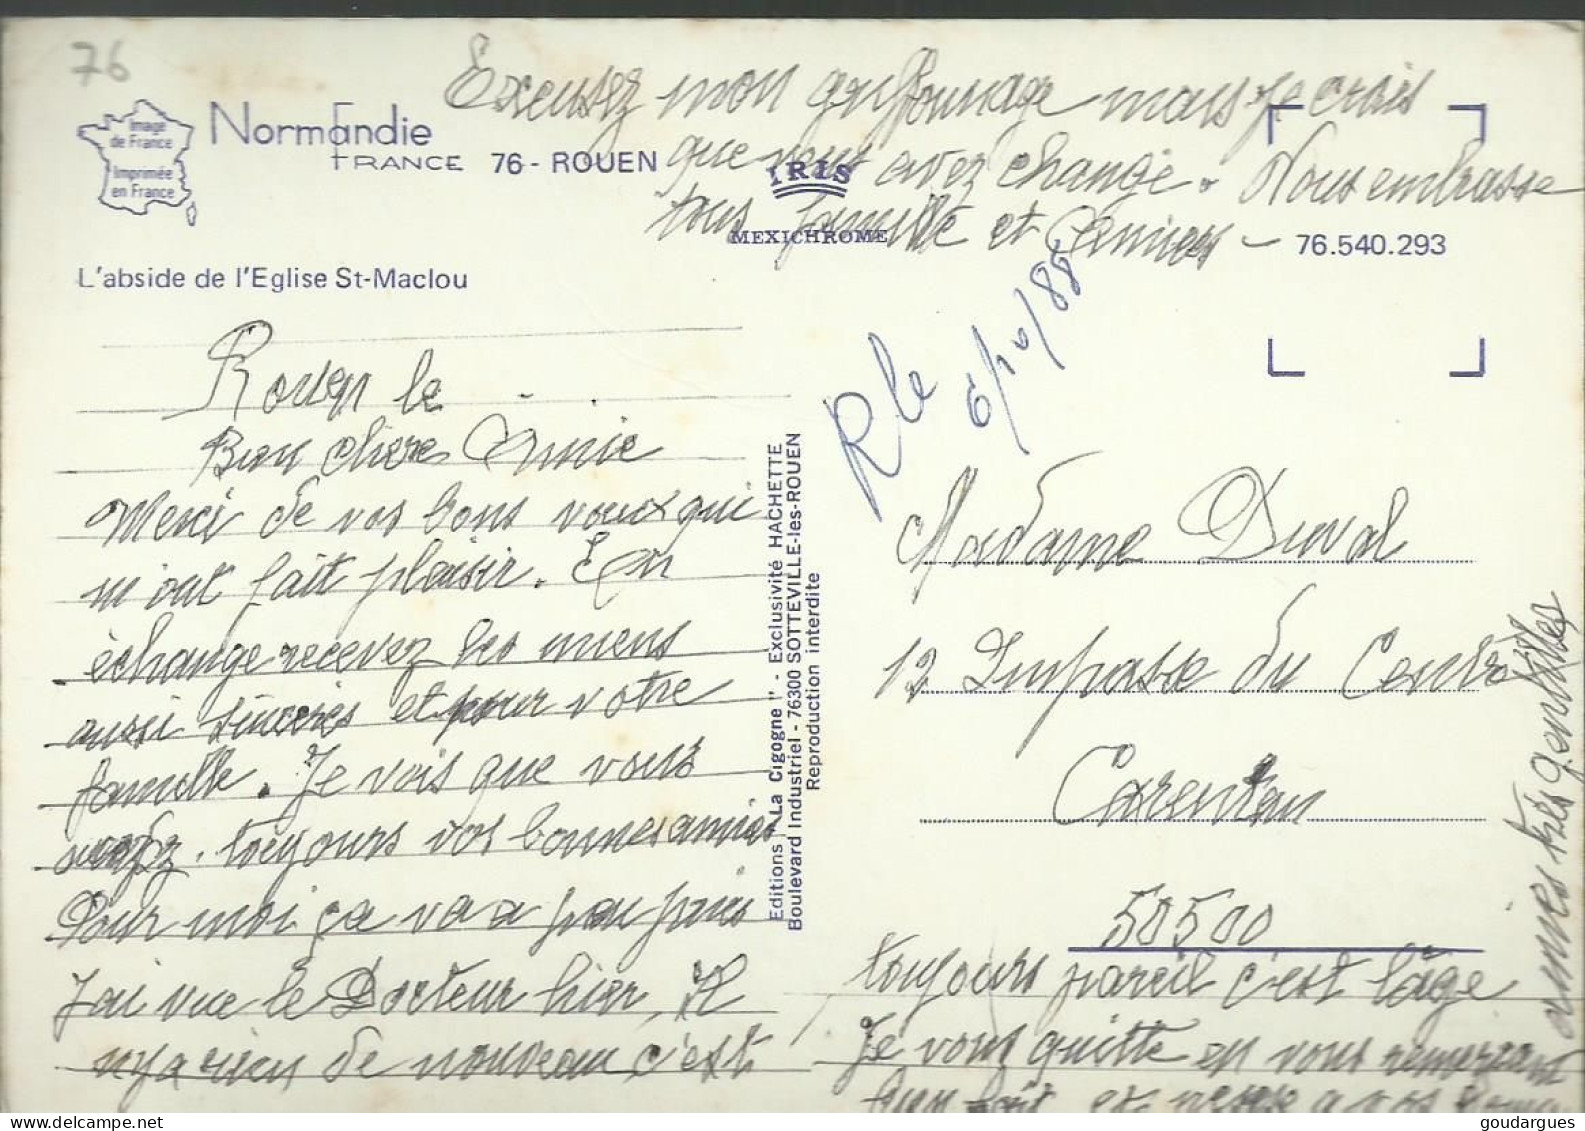 76
Excusez mon griffonnage mais je crois
que vous avez changé. Nous embrasse
tous famille et Amies -
Image
de France
Imprimée
en France
Normandie
FRANCE 76 - ROUEN
IRIS
MEXICHROME
76.540.293
L'abside de l'Eglise St-Maclou
Rouen le
Bien chère Amie
Merci de vos bons voeux qui
m'ont fait plaisir. En
échange recevez les miens
aussi sincères et pour votre
famille. Je vois que vous
avez toujours vos bonnes amies
Pour moi ça va a peu près
J'ai vue le Docteur hier, Il
n'y a rien de nouveau c'est
Editions "La Cigogne" - Exclusivité HACHETTE
Boulevard Industriel - 76300 SOTTEVILLE-les-ROUEN
Reproduction interdite
R le
6/10/88
Madame Duval
12 Impasse du Centre
Carentan
50500
toujours pareil c'est l'âge
Je vous quitte en vous remerçant
bien fait et a vos
amies très gentilles
goudargues